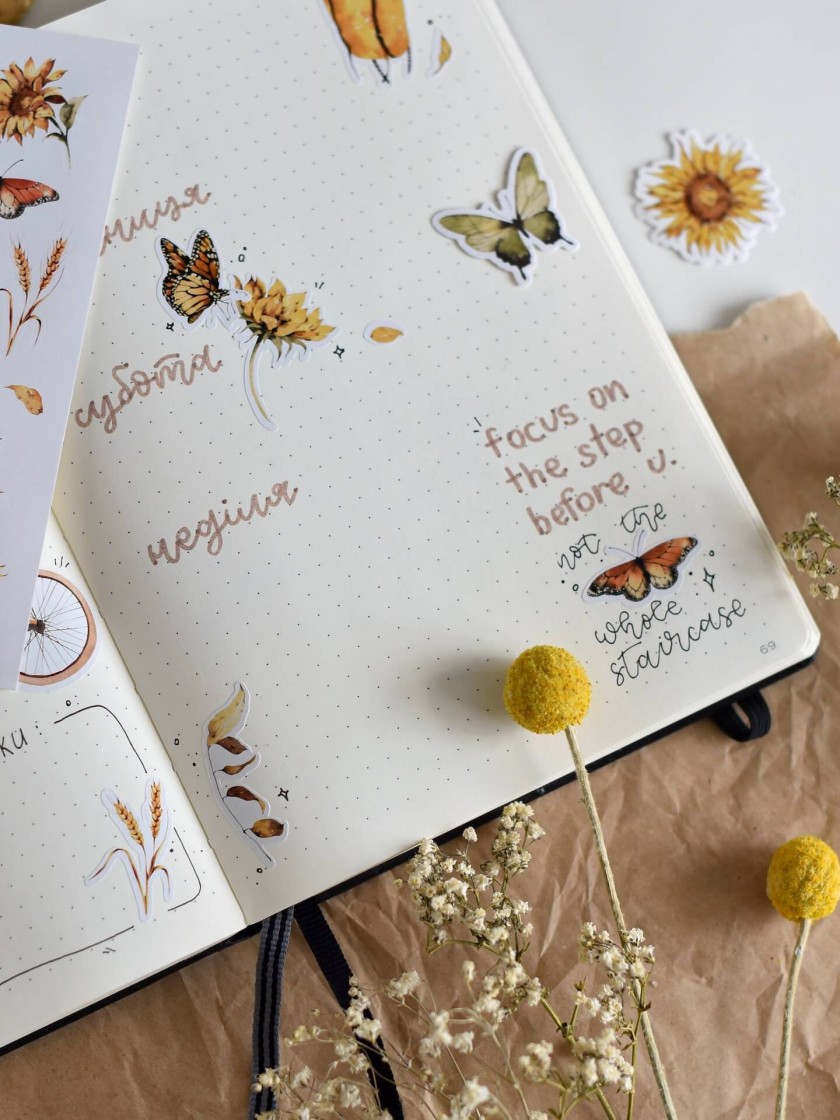 субота
неділя
focus on
the step
before u.
not the
whole
staircase
69